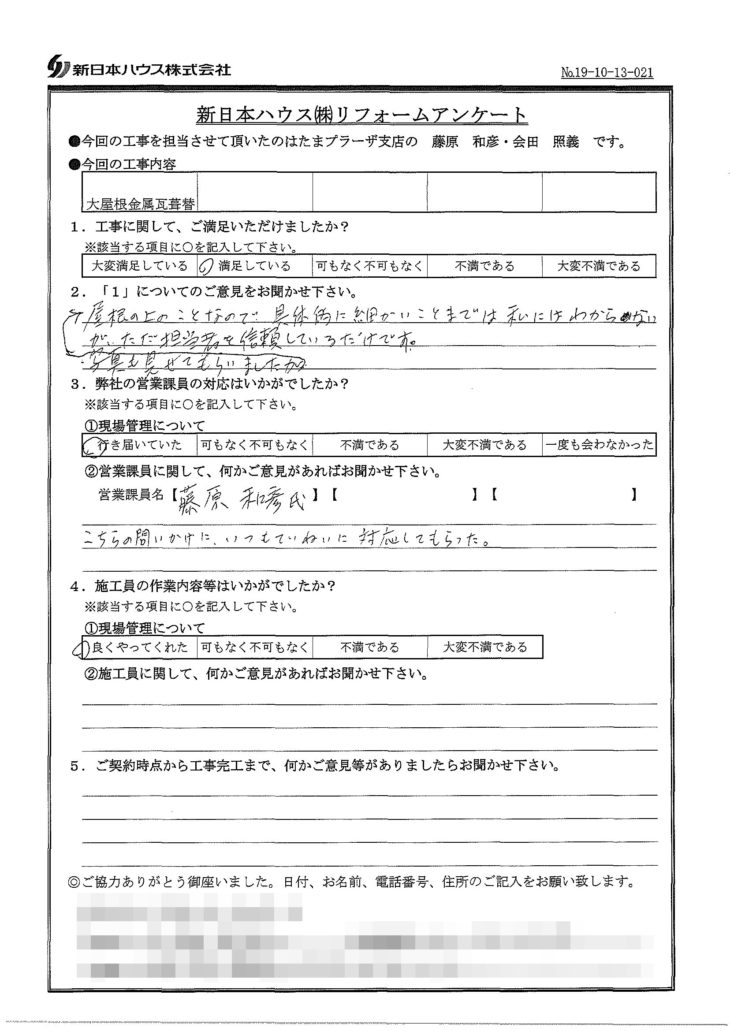 新日本ハウス株式会社
№19-10-13-021
新日本ハウス㈱リフォームアンケート
●今回の工事を担当させて頂いたのはたまプラーザ支店の 藤原 和彦・会田 照義 です。
●今回の工事内容
大屋根金属瓦葺替
1．工事に関して、ご満足いただけましたか？
※該当する項目に○を記入して下さい。
大変満足している 満足している 可もなく不可もなく 不満である 大変不満である
2．「1」についてのご意見をお聞かせ下さい。
屋根の上のことなので 具体的に細かいことまでは 私にはわからない
が、ただ担当者を信頼しているだけです。
写真も見せてもらいましたが
3．弊社の営業課員の対応はいかがでしたか？
※該当する項目に○を記入して下さい。
①現場管理について
行き届いていた 可もなく不可もなく 不満である 大変不満である 一度も会わなかった
②営業課員に関して、何かご意見があればお聞かせ下さい。
営業課員名【藤原 和彦氏】【 】【 】
こちらの問いかけに、いつもていねいに 対応してもらった。
4．施工員の作業内容等はいかがでしたか？
※該当する項目に○を記入して下さい。
①現場管理について
良くやってくれた 可もなく不可もなく 不満である 大変不満である
②施工員に関して、何かご意見があればお聞かせ下さい。
5．ご契約時点から工事完工まで、何かご意見等がありましたらお聞かせ下さい。
◎ご協力ありがとう御座いました。日付、お名前、電話番号、住所のご記入をお願い致します。